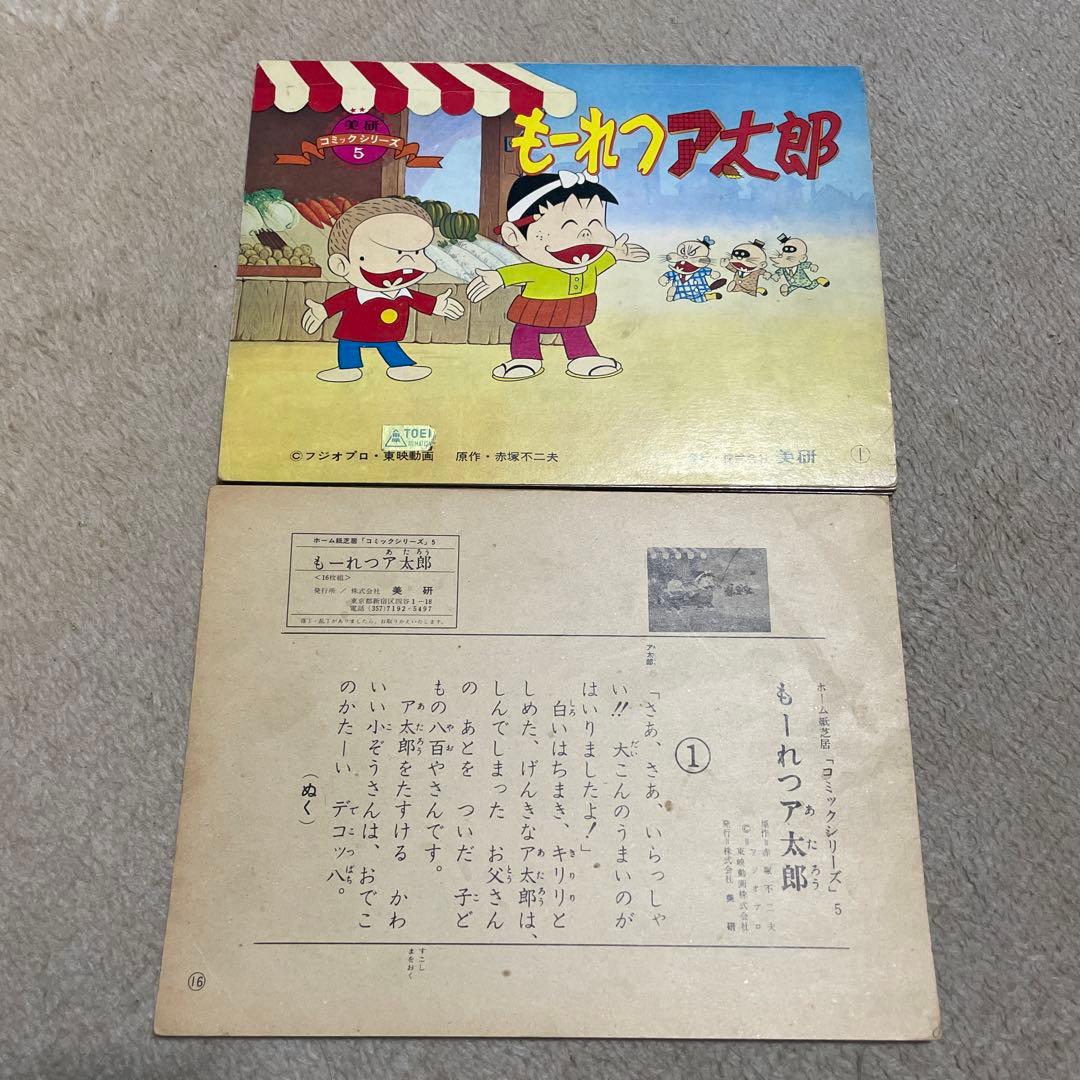 美研
コミックシリーズ
5
もーれつア太郎
TOEI
©フジオプロ・東映動画 原作・赤塚不二夫
美研
①
ホーム紙芝居「コミックシリーズ」5
あたろう
もーれつア太郎
<16枚組>
発行所/株式会社 美研
東京都新宿区四谷1-18
電話(357)7192・5497
落丁・乱丁がありましたら、お取りかえいたします。
ホーム紙芝居「コミックシリーズ」5
もーれつア太郎
あたろう
原作=赤塚不二夫
©=フジオプロ
=東映動画株式会社
発行=株式会社 美研
①
ア太郎
「さあ、さあ、いらっしゃ
い!! 大こんのうまいのが
だい
はいりましたよ!」
白いはちまき、キリリと
しろ きりり
しめた、げんきなア太郎は、
あたろう
しんでしまった お父さん
とう
の あとを ついだ 子ど
こ
もの八百やさんです。
やお
ア太郎をたすける かわ
あたろう
いい小ぞうさんは、おでこ
こ
のかたーい デコッ八。
でこっぱち
(ぬく)
すこし
まをおく
⑯